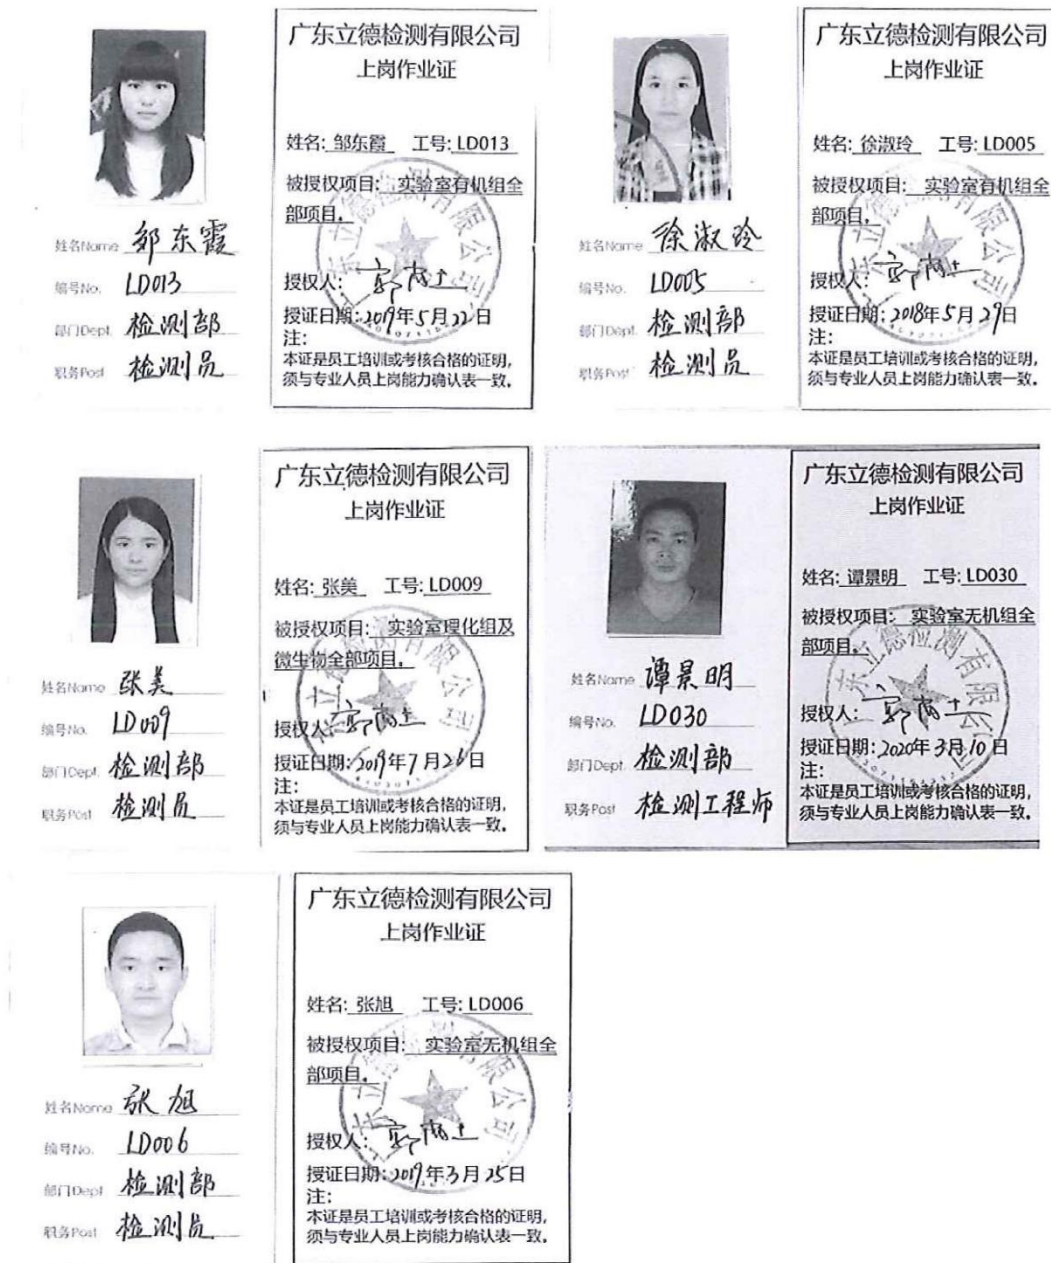 广东立德检测有限公司
上岗作业证
姓名: 邹东霞 工号: LD013
被授权项目: 实验室有机组全
部项目。
授权人:
授证日期: 2019年5月22日
注:
本证是员工培训或考核合格的证明,
须与专业人员上岗能力确认表一致。
姓名Name 邹东霞
编号No. LD013
部门Dept. 检测部
职务Post 检测员
广东立德检测有限公司
上岗作业证
姓名: 徐淑玲 工号: LD005
被授权项目: 实验室有机组全
部项目。
授权人:
授证日期: 2018年5月29日
注:
本证是员工培训或考核合格的证明,
须与专业人员上岗能力确认表一致。
姓名Name 徐淑玲
编号No. LD005
部门Dept. 检测部
职务Post 检测员
广东立德检测有限公司
上岗作业证
姓名: 张美 工号: LD009
被授权项目: 实验室理化组及
微生物全部项目。
授权人:
授证日期: 2019年7月26日
注:
本证是员工培训或考核合格的证明,
须与专业人员上岗能力确认表一致。
姓名Name 张美
编号No. LD009
部门Dept. 检测部
职务Post 检测员
广东立德检测有限公司
上岗作业证
姓名: 谭景明 工号: LD030
被授权项目: 实验室无机组全
部项目。
授权人:
授证日期: 2020年3月10日
注:
本证是员工培训或考核合格的证明,
须与专业人员上岗能力确认表一致。
姓名Name 谭景明
编号No. LD030
部门Dept. 检测部
职务Post 检测工程师
广东立德检测有限公司
上岗作业证
姓名: 张旭 工号: LD006
被授权项目: 实验室无机组全
部项目。
授权人:
授证日期: 2019年3月25日
注:
本证是员工培训或考核合格的证明,
须与专业人员上岗能力确认表一致。
姓名Name 张旭
编号No. LD006
部门Dept. 检测部
职务Post 检测员